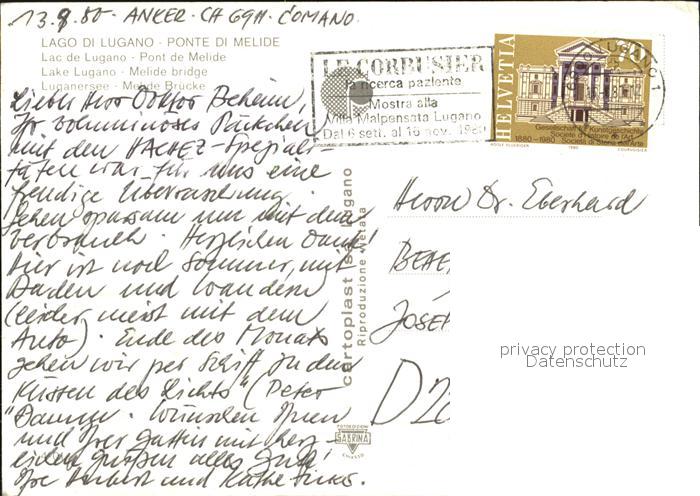 13.9.80 · ANKER · CH 6911 · COMANO.
LAGO DI LUGANO - PONTE DI MELIDE
Lac de Lugano - Pont de Melide
Lake Lugano - Melide bridge
Luganersee - Melide Brücke
LE CORBUSIER
la ricerca paziente
Mostra alla
Villa Malpensata Lugano
Dal 6 sett. al 16 nov. 1980
HELVETIA
70
LUGANO 1
Gesellschaft für Schweizerische Kunstgeschichte
1880-1980 Société d'Histoire de l'Art
Società di Storia dell'Arte
COURVOISIER
Lieber Herr Doktor Beheim,
Ihr voluminöses Päckchen
mit den HACHEZ-Spezial-
täten war für uns eine
freudige Überraschung.
Gehen sparsam um mit dem
Verbrauch. Herzlichen Dank!
Hier ist noch Sommer, mit
Baden und Wandern
(leider meist mit dem
Auto). Ende des Monats
gehen wir per Schiff zu den
"Küsten des Lichts" (Peter
Bamm. Wünschen Ihnen
und Ihrer Gattin mit herz-
lichen Grüßen alles Gute!
Ihre Herbert und Käthe
cartoplast sa - Lugano
Riproduzione vietata
FOTOEDIZIONI
SABRINA
CHIASSO
Herrn Dr. Eberhard
BEHE
JOSEF
D 28
privacy protection
Datenschutz